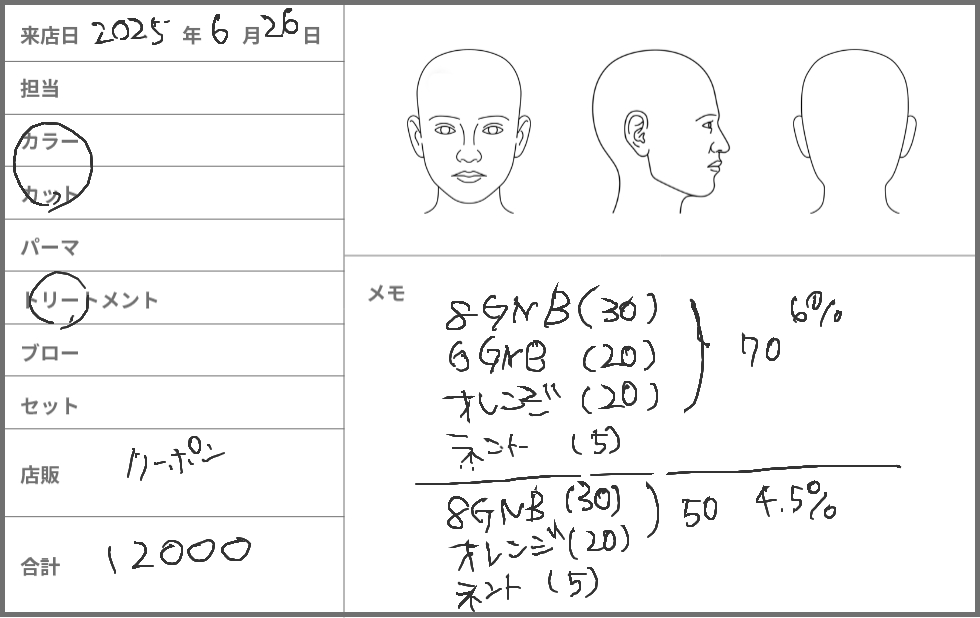 来店日 2025 年 6 月 26 日
担当
カラー
カット
パーマ
トリートメント
ブロー
セット
店販 クーポン
合計 12000
メモ
8GNB (30)
6GNB (20)
オレンジ (20)
70 6%
ネント (5)
8GNB (30)
オレンジ (20)
50 4.5%
ネント (5)